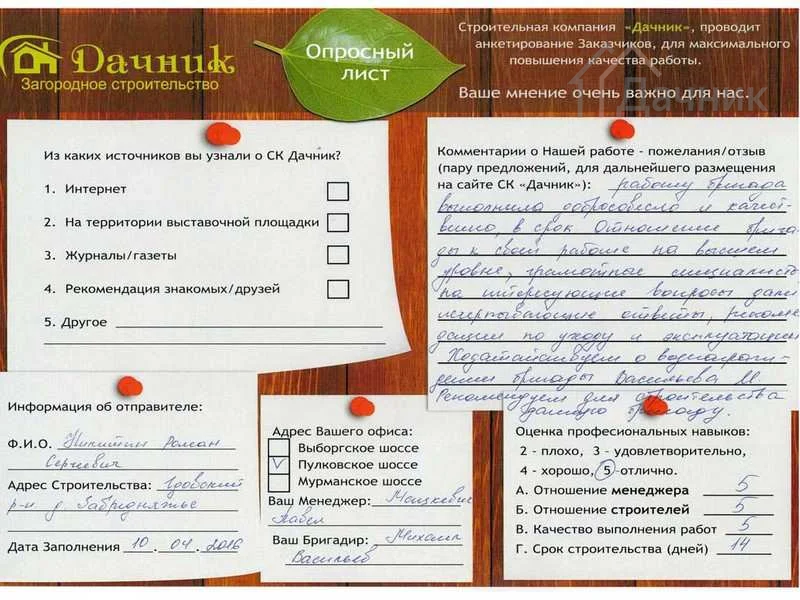 Дачник
Загородное строительство
Опросный
лист
Строительная компания «Дачник», проводит
анкетирование Заказчиков, для максимального
повышения качества работы.
Ваше мнение очень важно для нас.
Дачник
Из каких источников вы узнали о СК Дачник?
1. Интернет
2. На территории выставочной площадки
3. Журналы/газеты
4. Рекомендация знакомых/друзей
5. Другое
Комментарии о Нашей работе - пожелания/отзыв
(пару предложений, для дальнейшего размещения
на сайте СК «Дачник»): работу бригада
выполнила добросовесно и качест-
венно, в срок Отношение брига-
ды к своей работе на высшем
уровне, грамотные специалисты
на интересующие вопросы дали
исчерпывающие ответы, рекомен
дации по уходу и эксплуатации
Ходатайствуем о
бригады Васильева М
Рекомендуем для строительства
данную бригаду.
Информация об отправителе:
Ф.И.О. Никитин Роман
Сергеевич
Адрес Строительства: Гдовский
р-н д. Забредняжье
Дата Заполнения 10 . 04 . 2016
Адрес Вашего офиса:
Выборгское шоссе
Пулковское шоссе
Мурманское шоссе
Ваш Менеджер: Мацкевич
Павел
Ваш Бригадир: Михаил
Васильев
Оценка профессиональных навыков:
2 - плохо, 3 - удовлетворительно,
4 - хорошо, 5 -отлично.
А. Отношение менеджера 5
Б. Отношение строителей 5
В. Качество выполнения работ 5
Г. Срок строительства (дней) 14